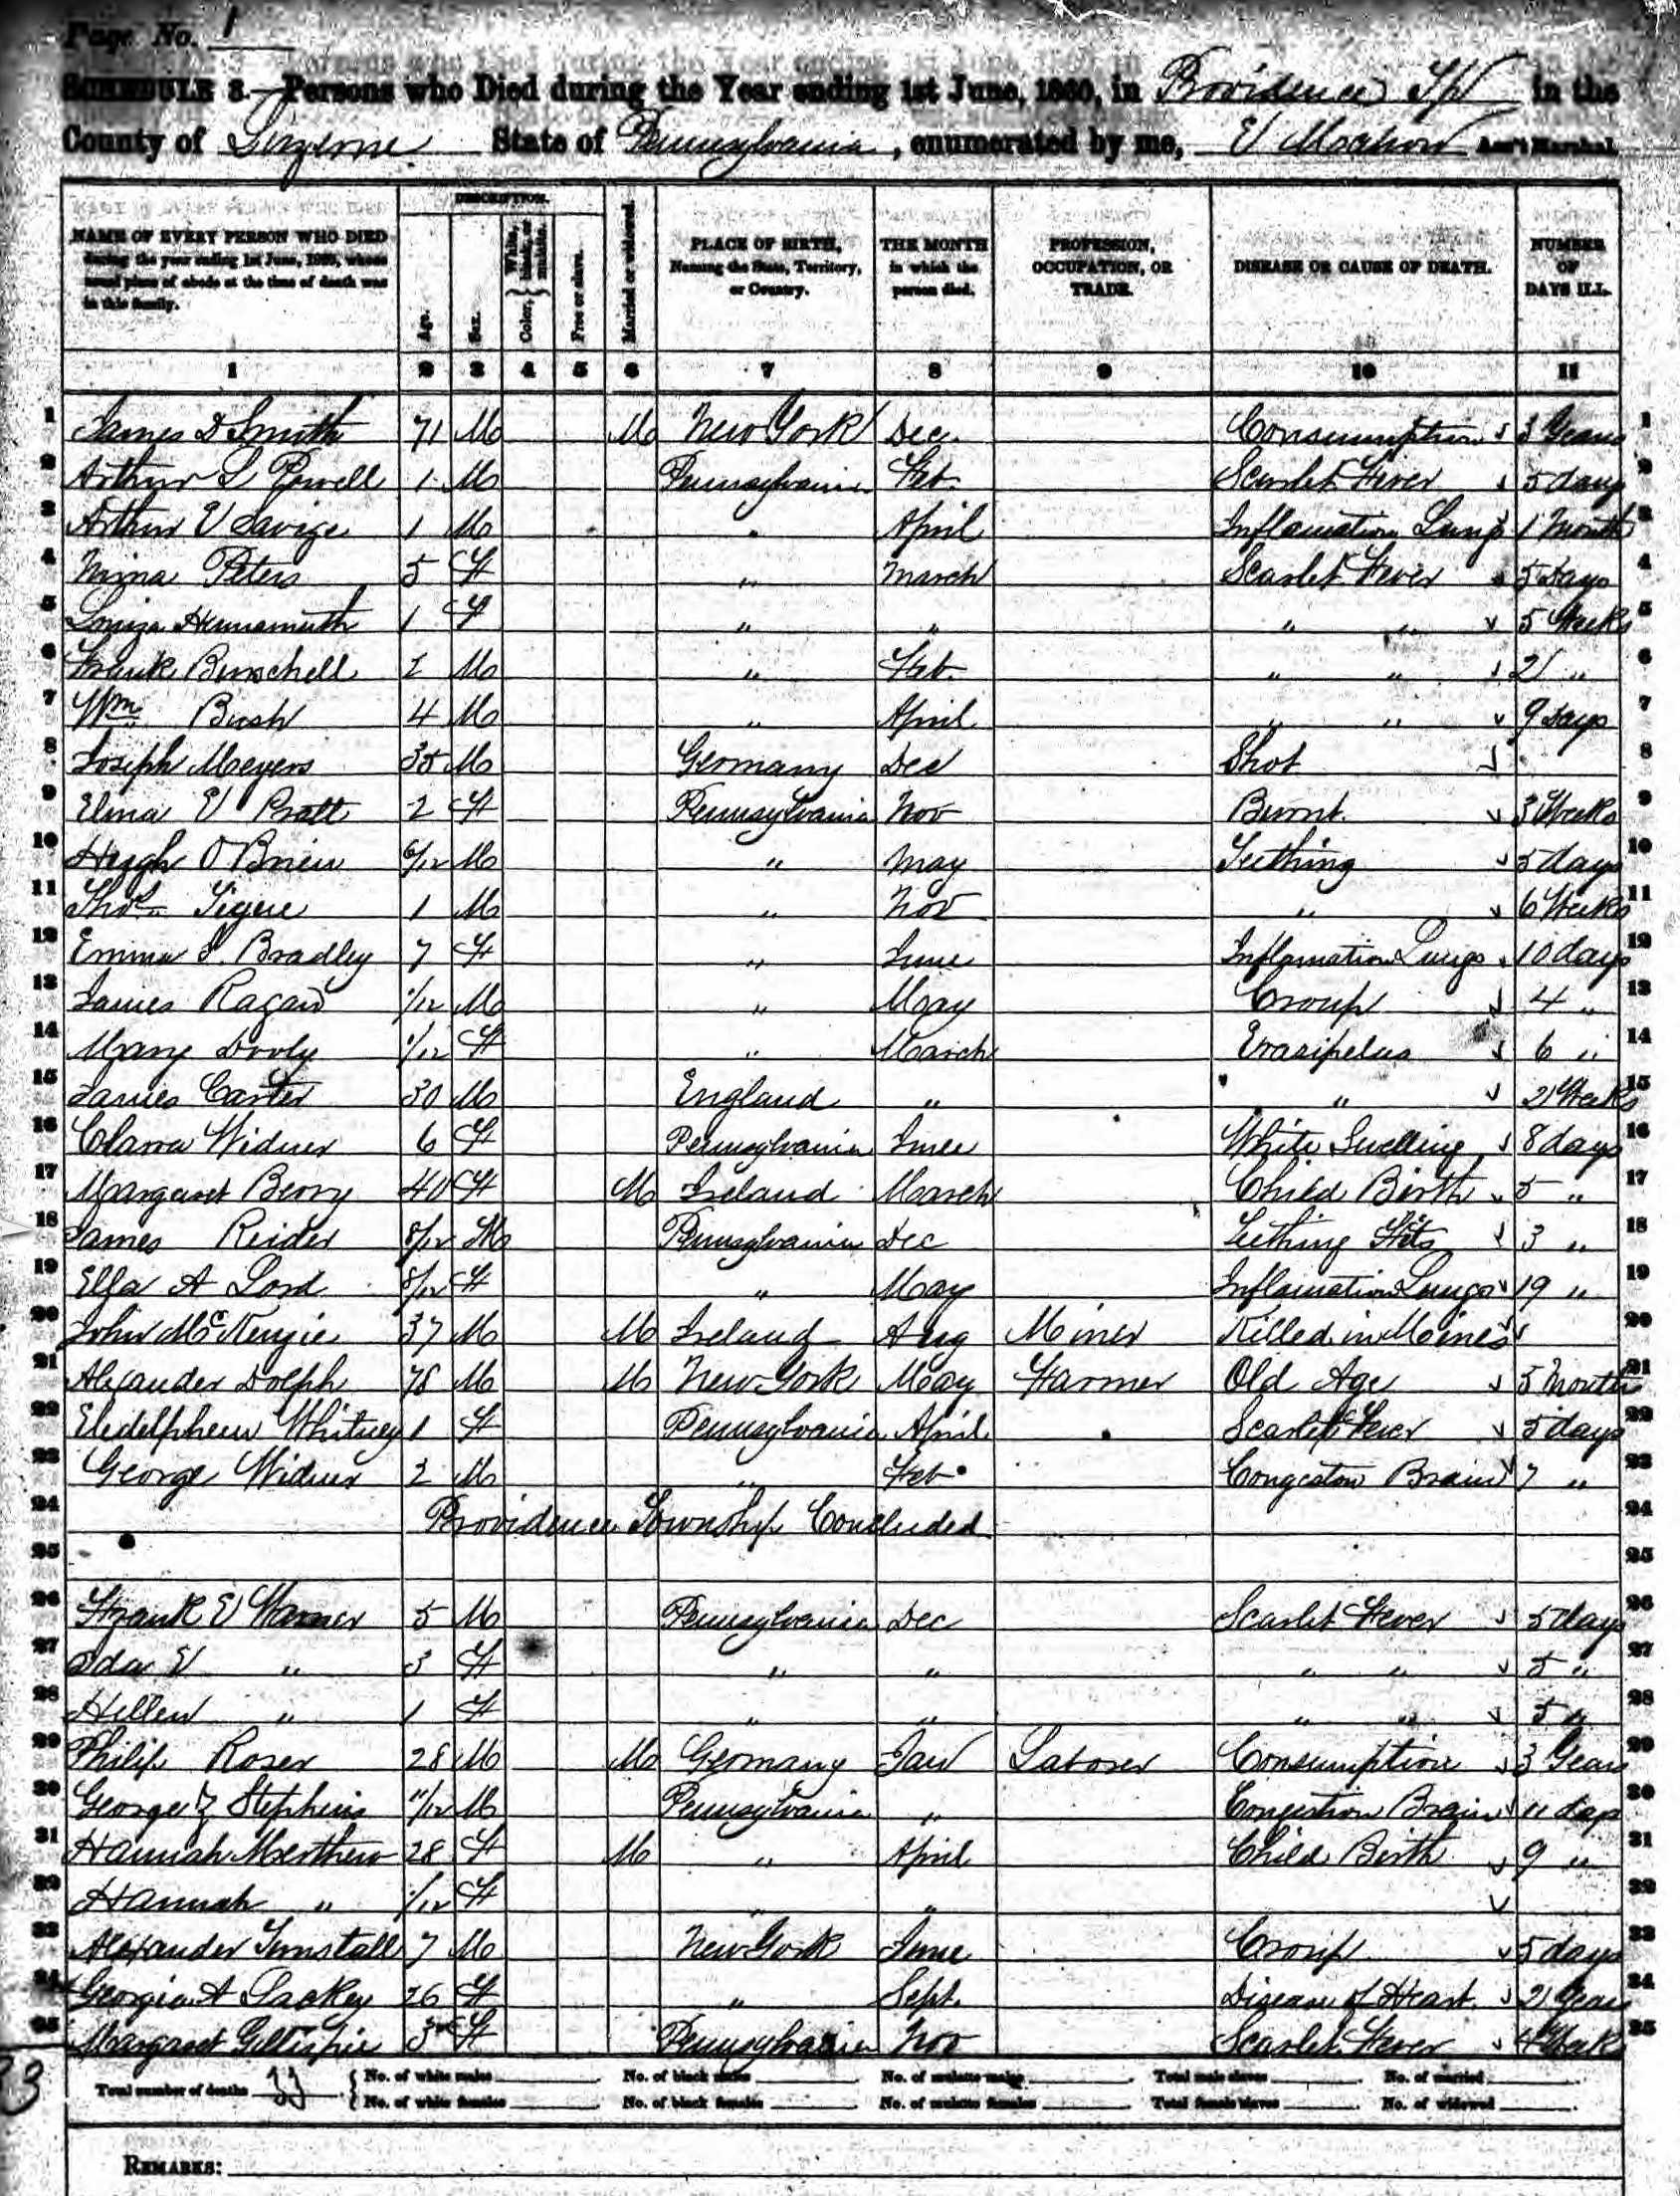 Page No. 1
SCHEDULE 3.—Persons who Died during the Year ending 1st June, 1860, in Providence Tp in the
County of Luzerne State of Pennsylvania, enumerated by me, Ass't Marshal.
DESCRIPTION.
NAME OF EVERY PERSON WHO DIED during the year ending 1st June, 1860, whose usual place of abode at the time of death was in this family.
Age.
Sex.
Color, White, black, or mulatto.
Free or slave.
Married or widowed.
PLACE OF BIRTH, Naming the State, Territory, or Country.
THE MONTH in which the person died.
PROFESSION, OCCUPATION, OR TRADE.
DISEASE OR CAUSE OF DEATH.
NUMBER OF DAYS ILL.
1 2 3 4 5 6 7 8 9 10 11
1 James D Smith 71 M M New York Dec. Consumption 3 Years 1
2 Arthur S Powell 1 M Pennsylvania Feb. Scarlet Fever 5 days 2
3 Arthur E Savige 1 M " April Inflamation Lungs 1 Month 3
4 Mina Peters 5 F " March Scarlet Fever 5 Days 4
5 Louiza 1 F " " " " 5 Weeks 5
6 Frank Burschell 2 M " Feb. " " 2 " 6
7 Wm Bush 4 M " April " " 9 Days 7
8 Joseph Meyers 35 M Germany Dec Shot 8
9 Elma E Pratt 2 F Pennsylvania Nov Burnt. 3 Weeks 9
10 Hugh O Brien 6/12 M " May Teething 5 days 10
11 Thos Tigue 1 M " Nov " 6 Weeks 11
12 Emma S. Bradley 7 F " June Inflamation Lungs 10 days 12
13 James Ragan 1/12 M " May Croup 4 " 13
14 Mary Dooly 1/12 F " March Erasipelas 6 " 14
15 James Carter 30 M England " " 2 Weeks 15
16 Clarra Widner 6 F Pennsylvania June White Swelling 8 days 16
17 Margaret Berry 40 F M Ireland March Child Birth 5 " 17
18 James Reider 8/12 M Pennsylvania Dec Teething Fits 3 " 18
19 Ella A Lord 8/12 F " May Inflamation Lungs 19 " 19
20 John McKenzie 37 M M Ireland Aug Miner Killed in Mines 20
21 Alexander Dolph 78 M M New York May Farmer Old Age 5 Months 21
22 Whitney 1 F Pennsylvania April Scarlet Fever 5 days 22
23 George Widner 2 M " Feb Congeston Brain 7 " 23
24 Providence Township Concluded 24
25 25
26 Frank E Warner 5 M Pennsylvania Dec Scarlet Fever 5 days 26
27 Ida E " 3 F " " " " 5 " 27
28 Hellen " 1 F " " " " 5 " 28
29 Philip Roser 28 M M Germany Jan Laborer Consumption 3 Years 29
30 George Z Stephens 11/12 M Pennsylvania " Congestion Brain 11 days 30
31 Hannah 28 F M " April Child Birth 9 " 31
32 Hannah " 1/12 F " " 32
33 Alexander Tunstall 7 M New York June Croup 5 days 33
34 Georgia A Lackey 26 F " Sept. Disease of Heart. 2 Years 34
35 Margaret Gillispie 3 F Pennsylvania Nov Scarlet Fever 4 Week 35
33
Total number of deaths 33. No. of white males No. of black males No. of mulatto males Total male slaves No. of married
No. of white females No. of black females No. of mulatto females Total female slaves No. of widowed
REMARKS: